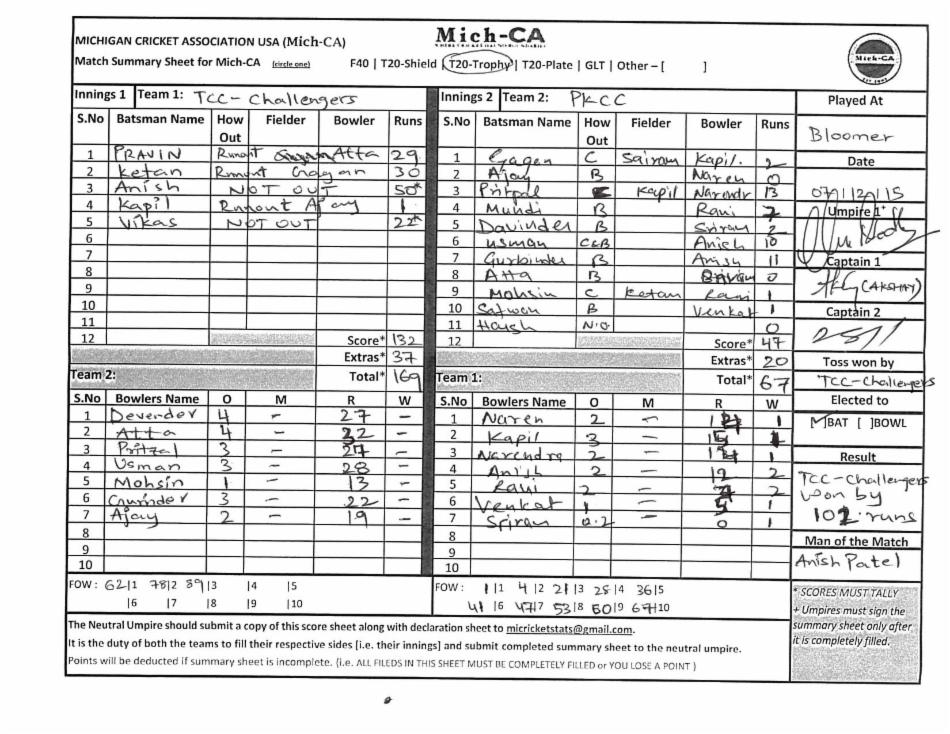 Mich-CA
MICHIGAN CRICKET ASSOCIATION USA (Mich-CA)
Match Summary Sheet for Mich-CA (circle one) F40 | T20-Shield | T20-Trophy | T20-Plate | GLT | Other – [ ]
Mich-CA
Innings 1 Team 1: TCC-Challengers
S.No Batsman Name How Out Fielder Bowler Runs
1 PRAVIN Runout Atta 29
2 Ketan Runout Gagan 30
3 Anish NOT OUT 50*
4 Kapil Runout Ajay 1
5 Vikas NOT OUT 22*
6
7
8
9
10
11
12 Score* 132
Extras* 37
Total* 169
Team 2:
S.No Bowlers Name O M R W
1 Devender 4 – 27 –
2 Atta 4 – 32 –
3 Pritpal 3 – 27 –
4 Usman 3 – 28 –
5 Mohsin 1 – 13 –
6 Gurinder 3 – 22 –
7 Ajay 2 – 19 –
8
9
10
FOW: 62|1 78|2 89|3 |4 |5
|6 |7 |8 |9 |10
Innings 2 Team 2: PKCC
S.No Batsman Name How Out Fielder Bowler Runs
1 Gagan C Sairam Kapil. 2
2 Ajay B Naren 0
3 Pritpal Kapil Narendr 13
4 Mundi B Ravi 7
5 Davinder B Sriram 2
6 Usman C&B Anish 10
7 Gurbinder B Anish 11
8 Atta B 0
9 Mohsin C Ketan Ravi 1
10 Satwan B Venkat 1
11 Harsh N.O 0
12 Score* 47
Extras* 20
Total* 67
Team 1:
S.No Bowlers Name O M R W
1 Naren 2 – 1
2 Kapil 3 –
3 Narendra 2 – 1
4 Anish 2 – 12 2
5 Ravi 2 – 2
6 Venkat 1 – 1
7 Sriram 0.2 – 0 1
8
9
10
FOW: 1|1 4|2 21|3 25|4 36|5
41|6 47|7 53|8 60|9 67|10
Played At
Bloomer
Date
07/12/15
Umpire 1+
Captain 1
(AKSHAY)
Captain 2
Toss won by
TCC-Challengers
Elected to
[ ]BAT [ ]BOWL
Result
TCC-Challengers
won by
102 runs
Man of the Match
Anish Patel
* SCORES MUST TALLY
+ Umpires must sign the
summary sheet only after
it is completely filled.
The Neutral Umpire should submit a copy of this score sheet along with declaration sheet to micricketstats@gmail.com.
It is the duty of both the teams to fill their respective sides [i.e. their innings] and submit completed summary sheet to the neutral umpire.
Points will be deducted if summary sheet is incomplete. (i.e. ALL FILEDS IN THIS SHEET MUST BE COMPLETELY FILLED or YOU LOSE A POINT )